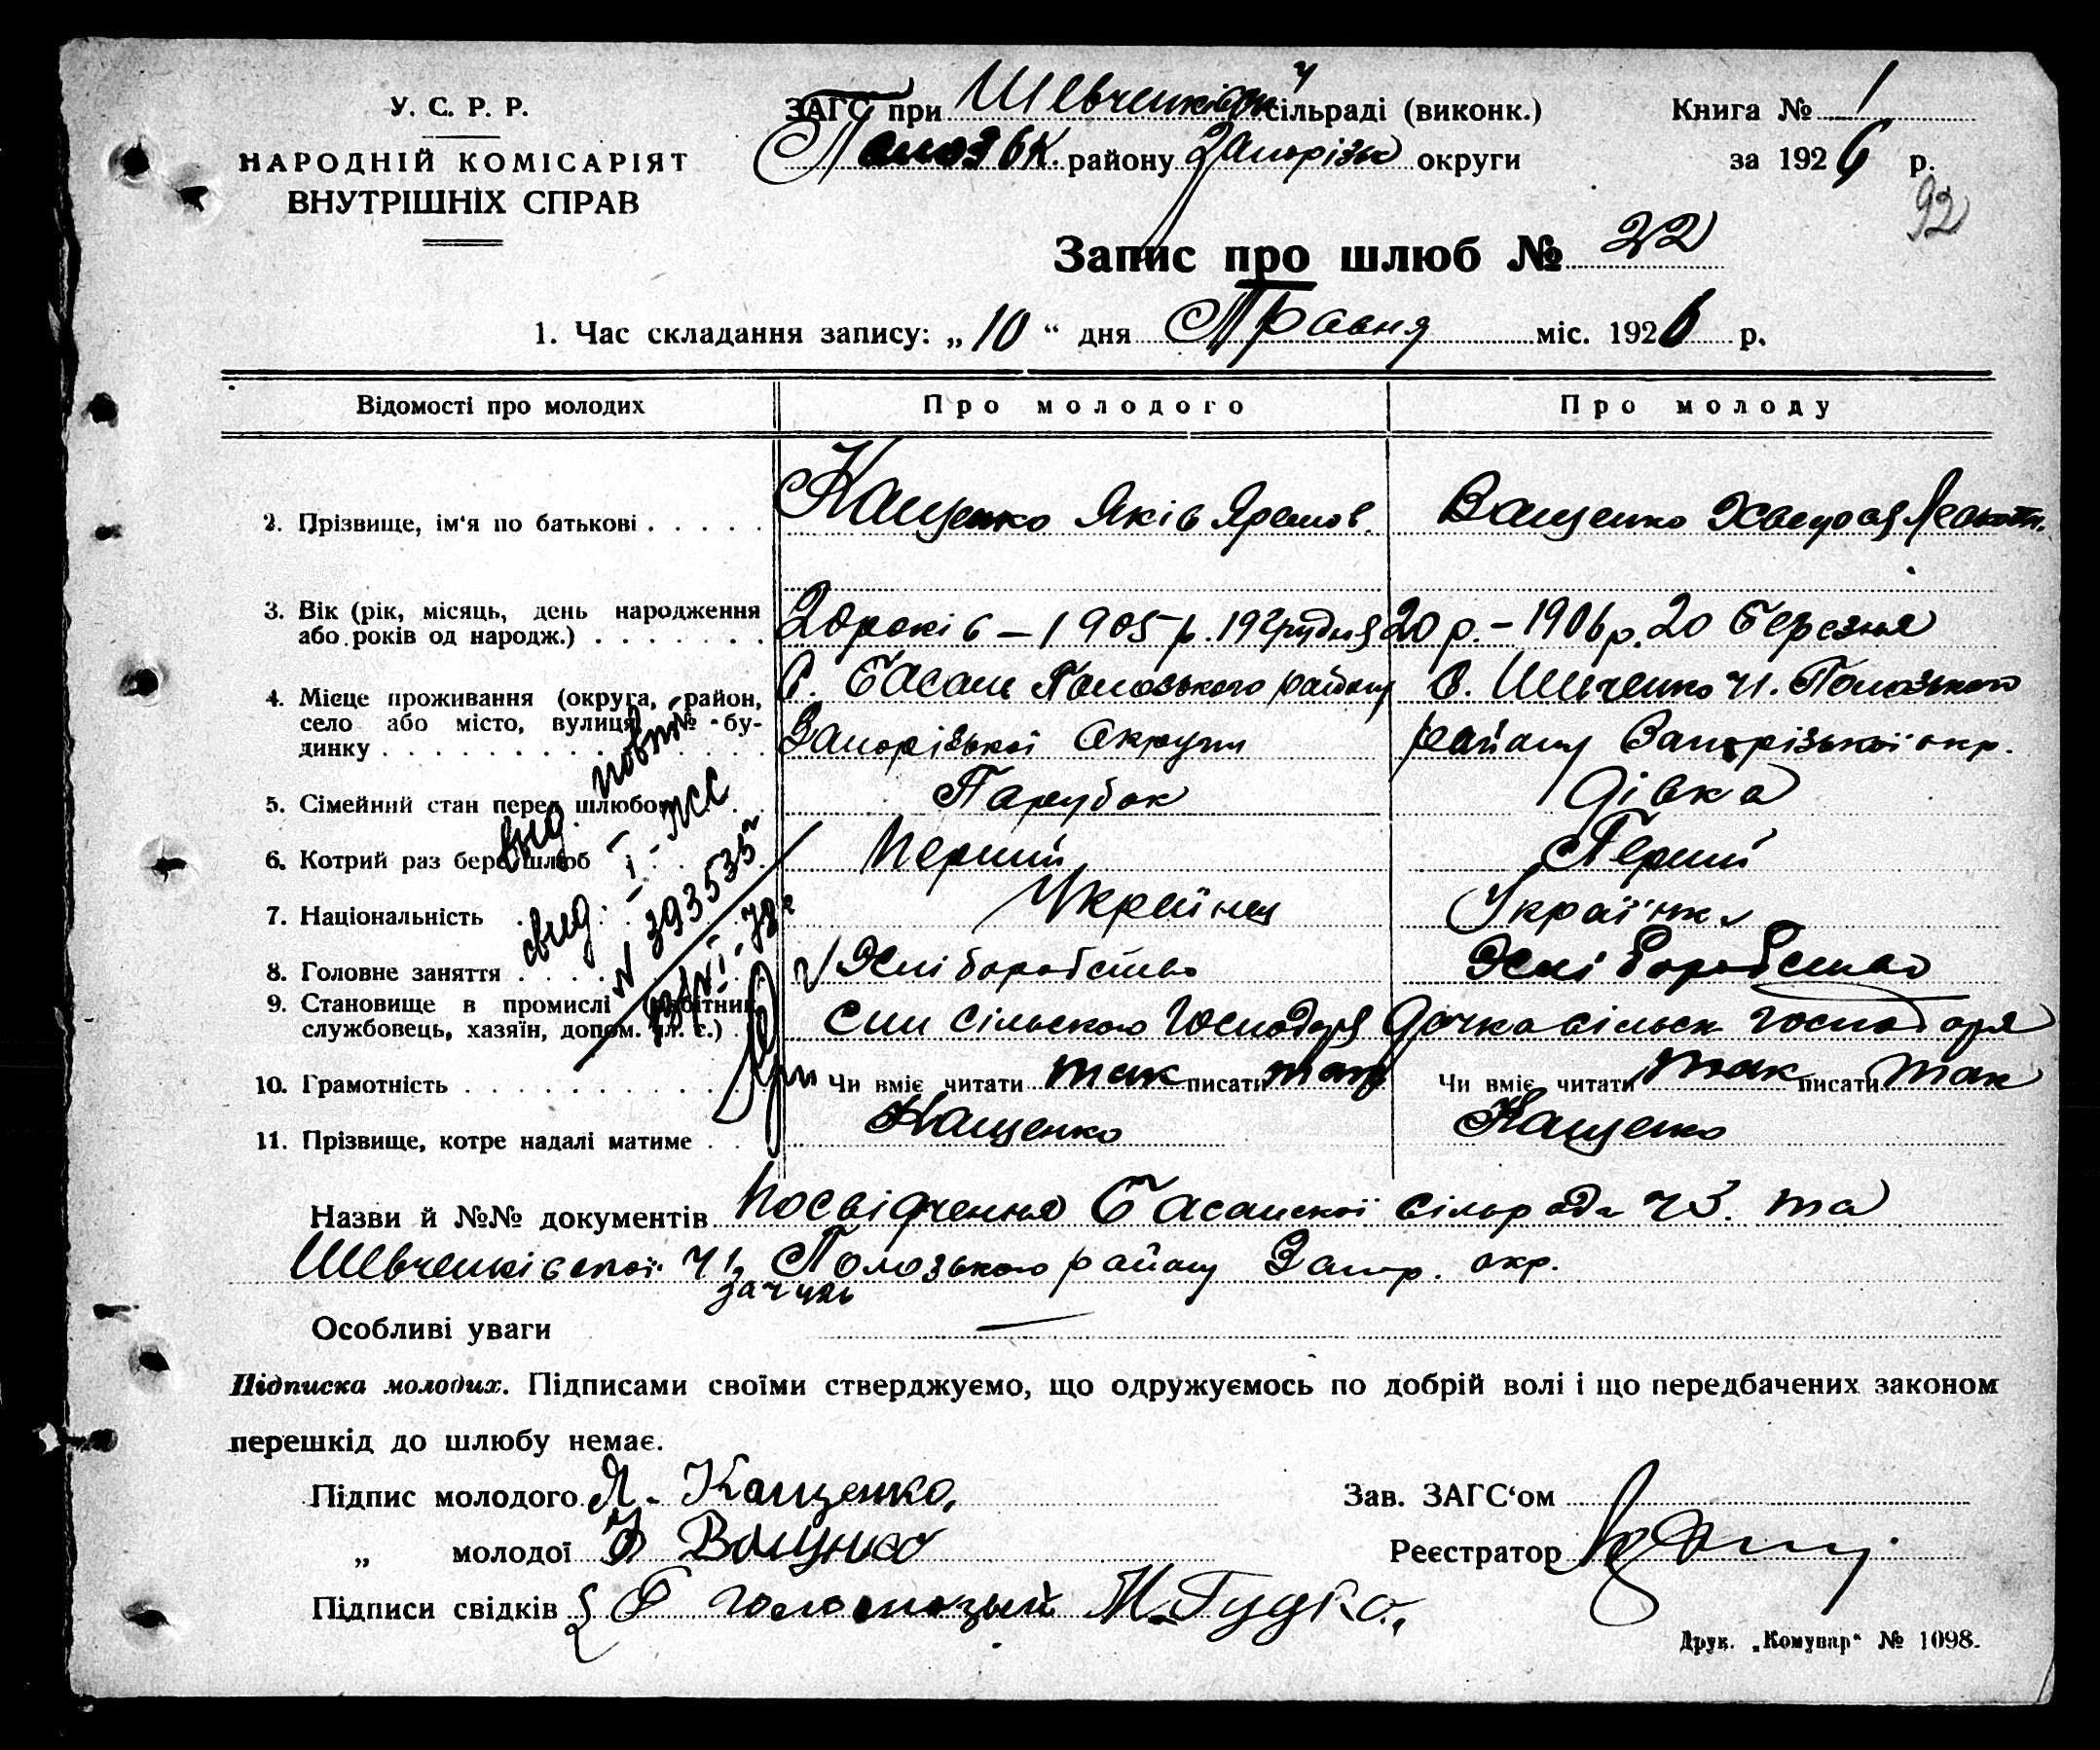 У. С. Р. Р.
НАРОДНІЙ КОМІСАРІЯТ
ВНУТРІШНІХ СПРАВ
ЗАГС при Шевченківськ сільраді (виконк.)
Полозьк. району Запорізьк округи
Книга № 1
за 1926 р.
92
Запис про шлюб № 22
1. Час складання запису: „10“ дня Травня міс. 1926 р.
Відомості про молодих Про молодого Про молоду
2. Прізвище, ім‘я по батькові . . . . . Кащенко Яків Яремов. Ващенко Хведося Леонт.
3. Вік (рік, місяць, день народження
або років од народж.) . . . . . . . 20 років – 1905 р. 19 грудня 20 р. – 1906 р. 20 березня
4. Місце проживання (округа, район, С. Басань Полозького району С. Шевченко ч1. Полозького
село або місто, вулиця, № бу-
динку . . . . . . . . . . . . . . . Запорізької округи району Запорізької окр.
5. Сімейний стан перед шлюбом Парубок Дівка
6. Котрий раз бере шлюб Перший Перший
7. Національність Українец Українка
8. Головне заняття . . . . Хліборобство Хліборобство
9. Становище в промислі (робітник,
службовець, хазяїн, допом. чл. с.) . Син сільского господаря Дочка сільск господаря
10. Грамотність . . . . . . . . . . Чи вміє читати так писати так Чи вміє читати так писати так
11. Прізвище, котре надалі матиме . . Кащенко Кащенко
вид. повтор
свид. I-ЖС
№ 393535
Назви й №№ документів Посвідчення Басанскої сільради ч3. та
Шевченківської ч1, Полозького району Запор. окр.
Особливі уваги —
Підписка молодих. Підписами своїми стверджуємо, що одружуємось по добрій волі і що передбачених законом
перешкід до шлюбу немає.
Підпис молодого Я. Кащенко. Зав. ЗАГС‘ом
„ молодої Х Ващенко Реєстратор
Підписи свідків { М. Гудко.
Друк. „Комунар“ № 1098.